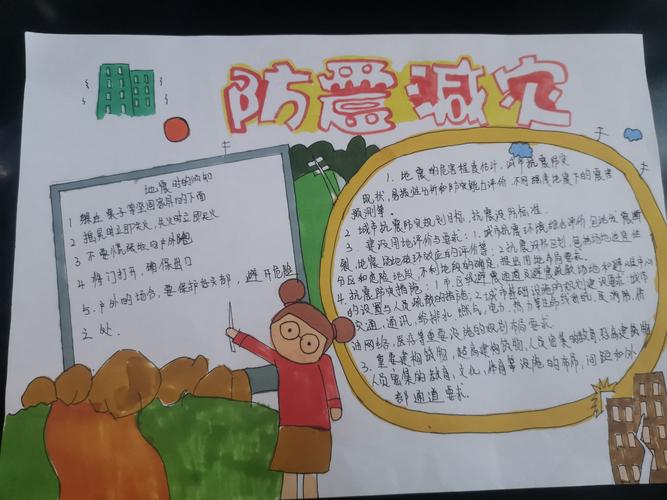 防震减灾
地震时的须知
1 躲在桌子等坚固家具的下面
2 摇晃时立即关火,失火时立即灭火
3 不要慌张地向户外跑
4 将门打开,确保出口
5、户外的场合,要保护好头部,避开危险
之处.
1. 地震的危害程度估计,城市抗震防灾
现状,易损性分析和防灾能力评价,不同强度地震下的震害
预测等。
2 城市抗震防灾规划目标,抗震设防标准.
3、建设用地评价与要求:1.城市抗震环境综合评价,包括发震断
裂、地震场地破坏效应的评价等;2 抗震设防区划,包括场地适宜性
分区和危险地段、不利地段的确定,提出用地布局要求.
4.抗震防灾措施:1 市、区级避震通道及避震疏散场地和避难中心
的设置与人员疏散的措施;2 城市基础设施的规划建设要求:城市
交通、通讯、给排水、燃气、电力、热力等生命线系统,及消防、供
油网络、医疗等重要设施的规划布局要求.
3、重要建构筑物、超高建构筑物、人员密集的教育
人员密集的教育、文化、体育等设施的布局、间距和外
部通道要求.